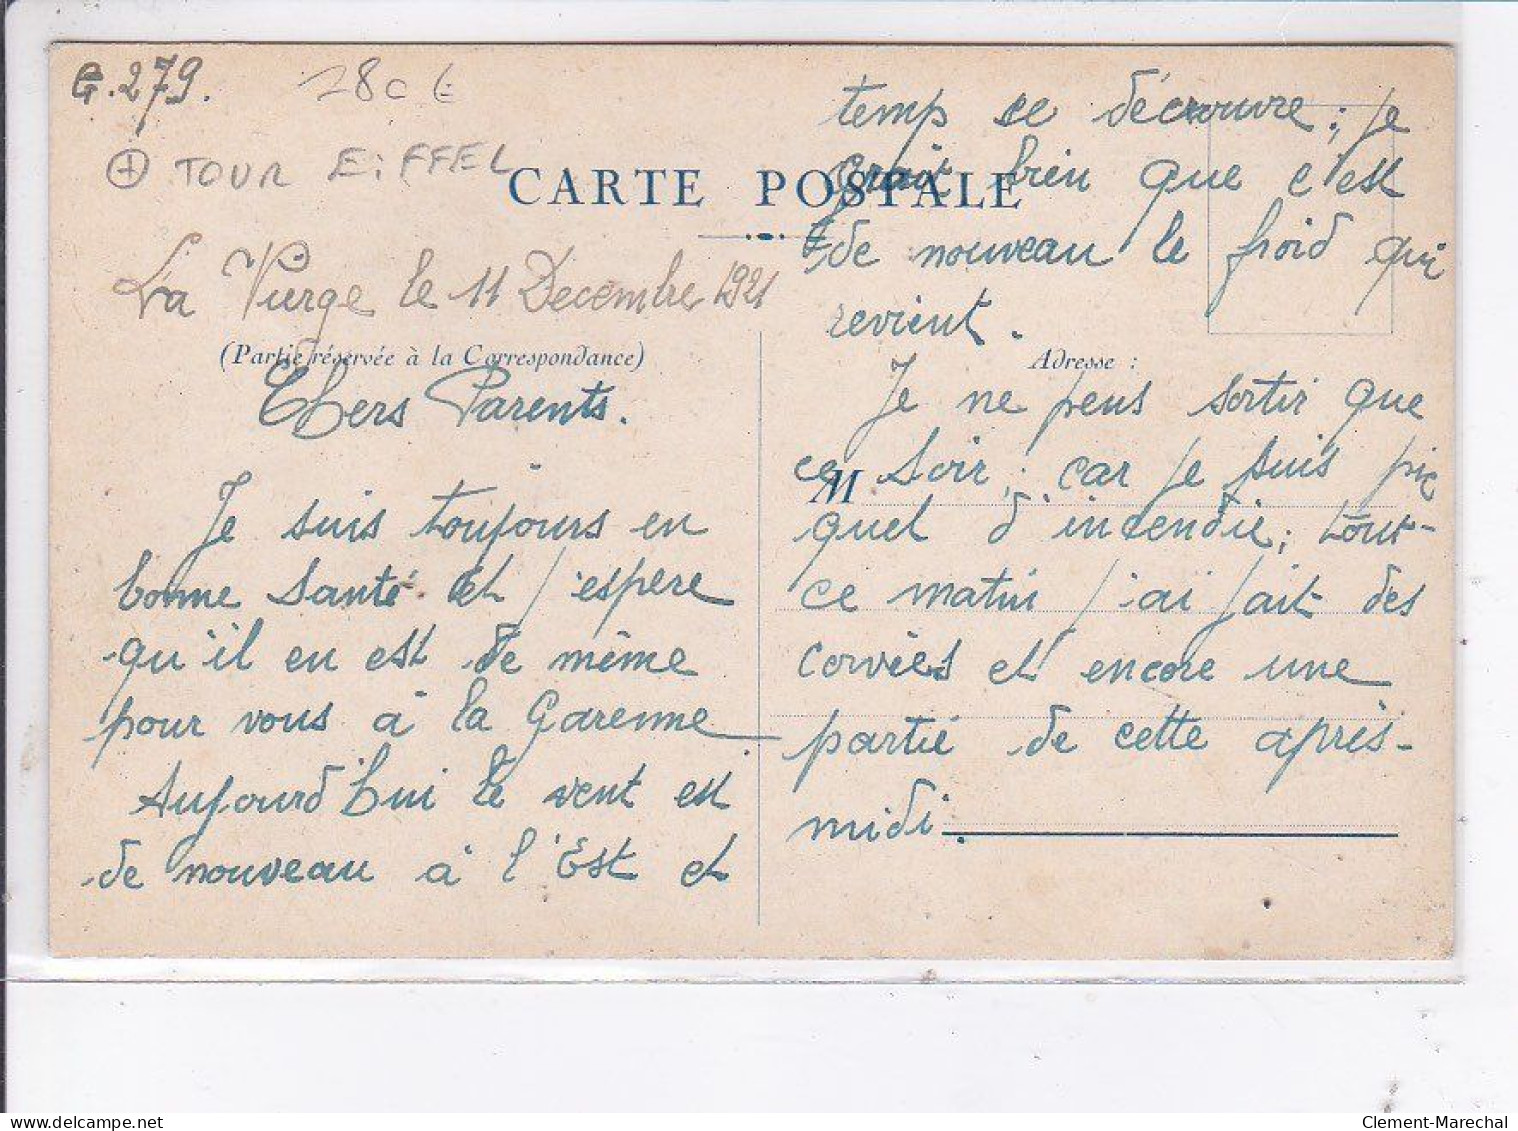 G.279.
TOUR EiFFEL
CARTE POSTALE
La Vierge le 11 Decembre 1921
(Partie réservée à la Correspondance)
Chers Parents.
Je suis toujours en
bonne Santé et j'espère
qu'il en est de même
pour vous à la Garenne
Aujourd'hui le vent est
de nouveau à l'Est et
temps se découvre; je
crois bien que c'est
de nouveau le froid qui
revient.
Adresse :
Je ne peus sortir que
ce Soir; car je suis pic
M
quet d'incendie; tout-
ce matin j'ai fait des
corvées et encore une
partie de cette après-
midi.
Clement-Marechal
delcampe.net